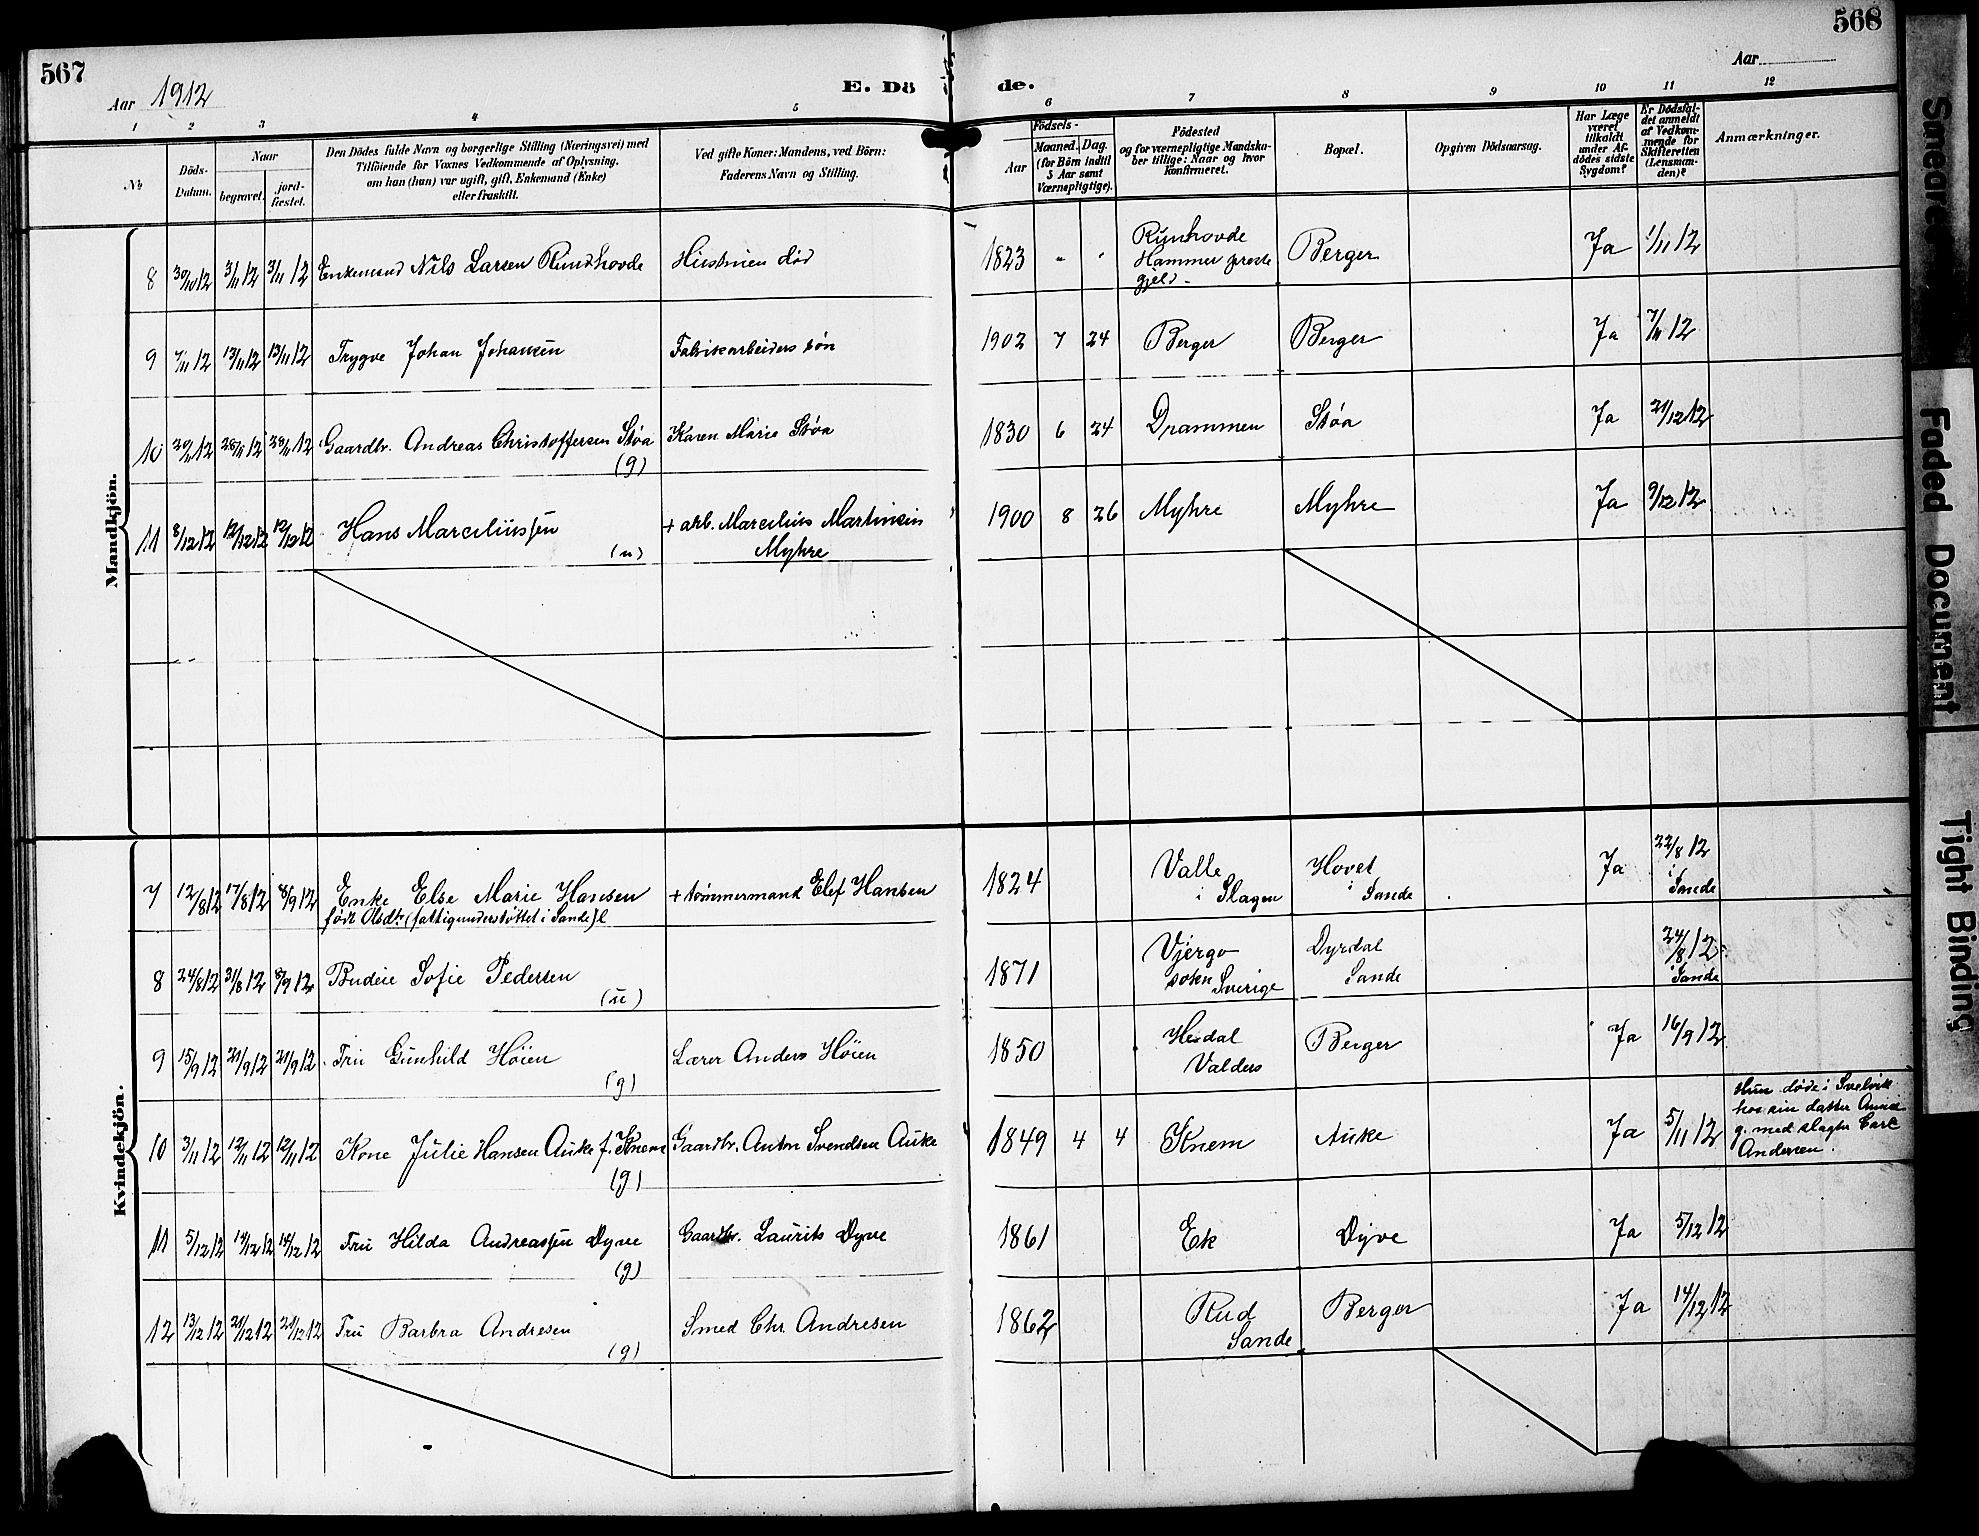 567
568
Aar 1912
E. Dö de.
Aar
1 2 3 4 5 6 7 8 9 10 11 12
№
Döds-Datum.
Naar
begravet.
jord-fæstet.
Den Dödes fulde Navn og borgerlige Stilling (Næringsvei) med
Tilföiende for Voxnes Vedkommende af Oplysning,
om han (hun) var ugift, gift, Enkemand (Enke)
eller fraskilt.
Ved gifte Koner: Mandens, ved Börn:
Faderens Navn og Stilling.
Födsels-
Aar
Maaned. Dag.
(for Börn indtil
5 Aar samt
Værnepligtige).
Födested
og for værnepligtige Mandska-
ber tillige: Naar og hvor
konfirmeret.
Bopæl.
Opgiven Dödsaarsag.
Har Læge
været
tilkaldt
under Af-
dödes sidste
Sygdom?
Er Dödsfal-
det anmeldt
af Vedkom-
mende for
Skifteretten
(Lensman-
den)?
Anmærkninger.
Mandkjön.
8 30/10 12 3/11 12 3/11 12 Enkemand Nils Larsen Rundhovde Hustruen død 1823 - - Runhovde Hammer preste gjeld - Berger Ja 1/11 12
9 7/11 12 13/11 12 13/11 12 Trygve Johan Johansen Fabrikarbeiders søn 1902 7 24 Berger Berger Ja 7/11 12
10 20/11 12 28/11 12 28/11 12 Gaardbr. Andreas Christoffersen Støa (g) Karen Marie Støa 1830 6 24 Drammen Støa Ja 21/12 12
11 8/12 12 12/12 12 12/12 12 Hans Marceliussen (u) + arb. Marcelius Martinsen Myhre 1900 8 26 Myhre Myhre Ja 9/12 12
Kvindekjön.
7 12/8 12 17/8 12 8/9 12 Enke Else Marie Hansen født Olsdtr. (fattigunderstøttet i Sande) e + tømmermand Elef Hansen 1824 Valle i Slagen Hovet i Sande Ja 22/8 12 i Sande
8 24/8 12 31/8 12 8/9 12 Budeie Sofie Pedersen (u) 1871 Vjergo sokn Sverige Dyrdal Sande 24/8 12 i Sande
9 15/9 12 21/9 12 21/9 12 Fru Gunhild Høien (g) Lærer Anders Høien 1850 Hesdal Valders Berger Ja 16/9 12
10 3/11 12 12/11 12 12/11 12 Kone Julie Hansen Auke f. Knem (g) Gaardbr. Anton Svendsen Auke 1849 4 4 Knem Auke Ja 5/11 12 Hun døde i Svelvik hos sin datter Anna g. med slagter Carl Andersen.
11 5/12 12 14/12 12 14/12 12 Fru Hilda Andreassen Dyve (g) Gaardbr. Laurits Dyve 1861 Ek Dyve Ja 5/12 12
12 13/12 12 21/12 12 21/12 12 Fru Barbra Andresen (g) Smed Chr. Andresen 1862 Rud Sande Berger Ja 14/12 12
Smeared
Faded Document
Tight Binding